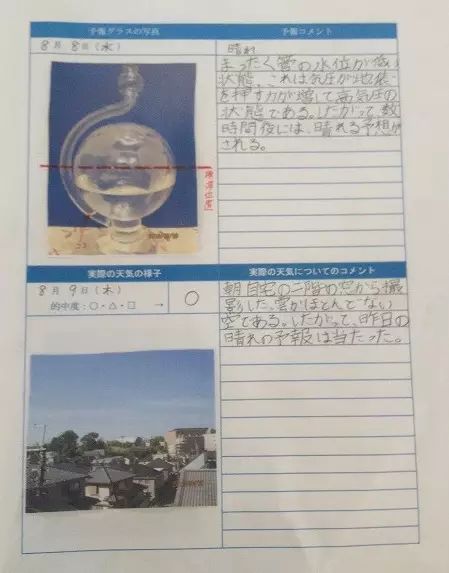 予報グラスの写真
予報コメント
8月 8日(水)
晴れ
まったく管の水位が低い
状態、これは気圧が地表
を押す力が増して高気圧の
状態である。したがって、数
時間後には、晴れる予想が
される。
標準位置
ココ
実際の天気の様子
実際の天気についてのコメント
8月 9日(木)
的中度:○・△・□ → ○
朝自宅の二階の窓から撮
影した。雲がほとんどない
空である。したがって、昨日の
晴れの予報は当たった。